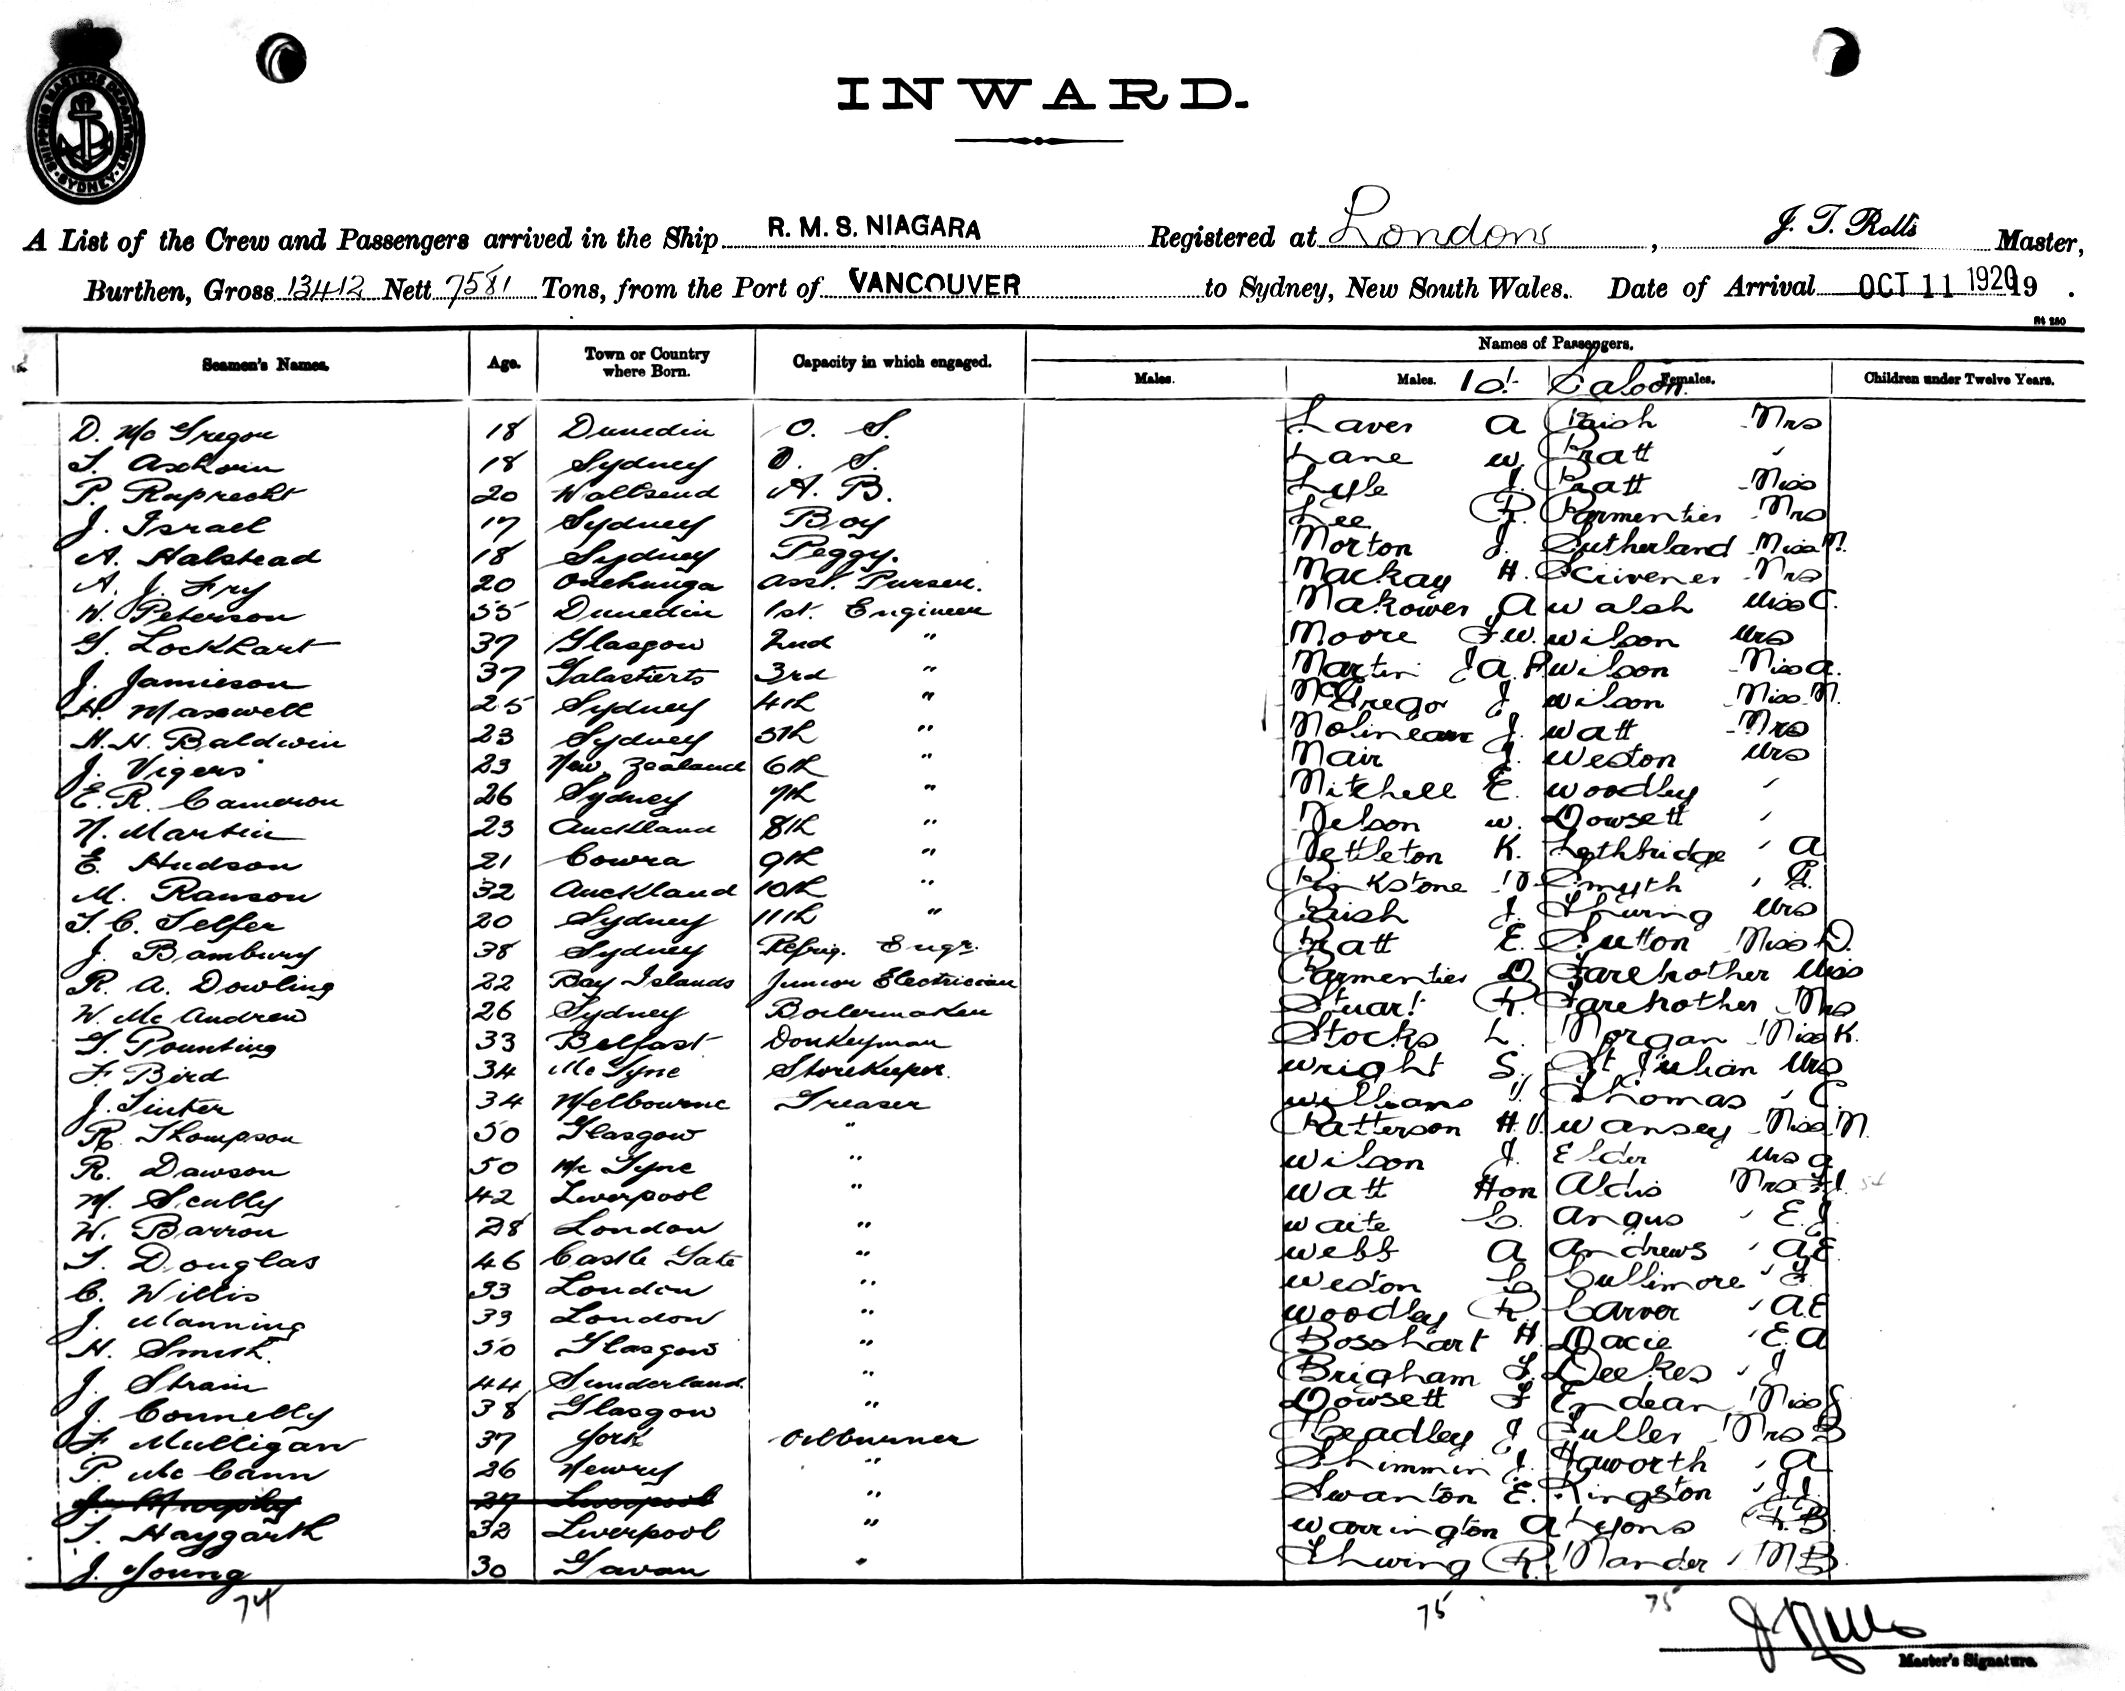 SHIPPING MASTERS DEPARTMENT
SYDNEY
INWARD.
A List of the Crew and Passengers arrived in the Ship R. M. S. NIAGARA Registered at London, J. T. Rolls Master,
Burthen, Gross 13412 Nett 7581 Tons, from the Port of VANCOUVER to Sydney, New South Wales. Date of Arrival OCT 11 1920 19 .
Names of Passengers.
Seamen's Names. Age. Town or Country where Born. Capacity in which engaged. Males. Males. Females. Children under Twelve Years.
Saloon
D. McGregor 18 Dunedin O. S. Laver A Parish Mrs
18 Sydney O. S. Lane W. Pratt "
P. Ruprecht 20 Wallsend A. B. Lyle J. Pratt Miss
J. Israel 17 Sydney Boy Lee R. Parmentier Mrs
A. Halstead 18 Sydney Peggy. Morton J. Sutherland Miss M.
A. J. Fry 20 Onehunga Asst. Purser. Mackay H. Scrivener Mrs
W. Peterson 55 Dunedin 1st. Engineer Makower A Walsh Miss C.
G. Lockhart 37 Glasgow 2nd " Moore F W. Wilson Mrs
J. Jamieson 37 Galastierts 3rd " Martin J A. P. Wilson Miss A.
H. Maxwell 25 Sydney 4th " McGregor J Wilson Miss M.
H. H. Baldwin 23 Sydney 5th " Molineaux J. Watt Mrs
J. Vigers 23 New Zealand 6th " Mair J. Weston Mrs
E. R. Cameron 26 Sydney 7th " Mitchell E. Woodley "
N. Martin 23 Auckland 8th " Nelson W. Dowsett "
E. Hudson 21 Cowra 9th " Nettleton K. Lethbridge " A
M. Ranson 32 Auckland 10th " Pinkstone Smyth "
T. C. Telfer 20 Sydney 11th " Parish J. Thwing Mrs
J. Bambury 38 Sydney Refrig. Engr. Pratt E. Sutton Miss D.
R. A. Dowling 22 Bay Islands Junior Electrician Parmentier D. Farebrother Miss
W. McAndrew 26 Sydney Boilermaker Stuart R. Farebrother Mrs
G. Pounting 33 Belfast Donkeyman Stocks L. Morgan Miss K.
F. Bird 34 Storekeeper. Wright S. St Julian Mrs
J. Linter 34 Melbourne Greaser Williams Thomas " C.
R. Thompson 50 Glasgow " Patterson H. V. Wansey Miss N.
R. Dawson 50 " Wilson J. Elder Mrs G
M. Scully 42 Liverpool " Watt Hon Aldis Mrs
W. Barron 28 London " Waite C. Angus " E. J.
T. Douglas 46 Castle Gate " Webb A Andrews " A E
C. Willis 33 London " Weston C Cullimore " F.
J. Manning 33 London " Woodley R. Carver " A. E
H. Smith. 50 Glasgow " Bosshart H. Dacie " E. A
J. Strain 44 Sunderland. " Brigham F. Deekes " J
J. Connelly 38 Glasgow " Dowsett F Endean Miss J
F. Mulligan 37 York Oilburner Headley J Fuller Mrs B
P. McCann 26 Newry " Shimmin J. Haworth " A
J. Murphy 27 Liverpool " Swanton E. Kingston " J. J.
T. Haygarth 32 Liverpool " Warrington A Lyons " R. B.
J. Young 30 Gavan " Thwing R. Mander " M B.
74 75 75
Master's Signature.